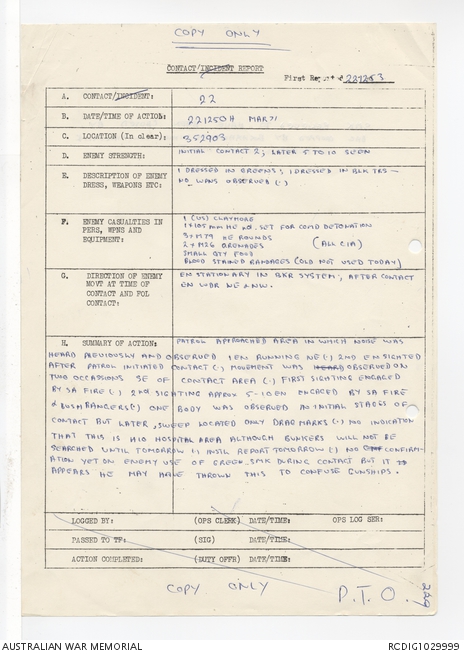 COPY ONLY
CONTACT/INCIDENT REPORT
First Report 221253
A. CONTACT/INCIDENT: 22
B. DATE/TIME OF ACTION: 221250H MAR 71
C. LOCATION (In clear): 352903
D. ENEMY STRENGTH: INITIAL CONTACT 2; LATER 5 TO 10 SEEN
E. DESCRIPTION OF ENEMY DRESS, WEAPONS ETC: 1 DRESSED IN GREENS; 1 DRESSED IN BLK TRS -
NO WPNS OBSERVED (.)
F. ENEMY CASUALTIES IN PERS, WPNS AND EQUIPMENT: 1 (US) CLAYMORE
1 X 105 MM HE RD. SET FOR COMD DETONATION
3 X M79 HE ROUNDS
2 X M26 GRENADES (ALL C/A)
SMALL QTY FOOD
BLOOD STAINED BANDAGES (OLD NOT USED TODAY)
G. DIRECTION OF ENEMY MOVT AT TIME OF CONTACT AND FOL CONTACT: EN STATIONARY IN BKR SYSTEM; AFTER CONTACT
EN WDR NE & NW.
H. SUMMARY OF ACTION: PATROL APPROACHED AREA IN WHICH NOISE WAS
HEARD PREVIOUSLY AND OBSERVED 1 EN RUNNING NE (.) 2ND EN SIGHTED
AFTER PATROL INITIATED CONTACT (.) MOVEMENT WAS HEARD OBSERVED ON
TWO OCCASSIONS SE OF CONTACT AREA (.) FIRST SIGHTING ENGAGED
BY SA FIRE (.) 2ND SIGHTING APPROX 5-10 EN ENGAGED BY SA FIRE
& BUSHRANGERS (.) ONE BODY WAS OBSERVED IN INITIAL STAGES OF
CONTACT BUT LATER SWEEP LOCATED ONLY DRAG MARKS (.) NO INDICATION
THAT THIS IS HIO HOSPITAL AREA ALTHOUGH BUNKERS WILL NOT BE
SEARCHED UNTIL TOMORROW (.) INSTL REPORT TOMORROW (.) NO CONFIRM-
ATION YET ON ENEMY USE OF GREEN SMK DURING CONTACT BUT IT
APPEARS HE MAY HAVE THROWN THIS TO CONFUSE GUNSHIPS.
LOGGED BY: (OPS CLERK) DATE/TIME: OPS LOG SER:
PASSED TO TF: (SIG) DATE/TIME:
ACTION COMPLETED: (DUTY OFFR) DATE/TIME:
COPY ONLY
P.T.O.
229
AUSTRALIAN WAR MEMORIAL
RCDIG1029999